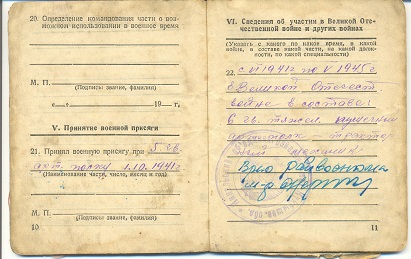 20. Определение командования части о воз-
можном использовании в военное время
М. П.
(Подписы звание, фамилия)
19 г.
V. Принятие военной присяги
21. Принял военную присягу при 5 гв.
арт. полку 1.10.1941 г.
(Наименование части, число, месяц и год)
М. П.
(Подпись звание, фамилия)
10
VI. Сведения об участии в Великой Оте-
чественной войне и других войнах
(Указать с какого по какое время, в какой
войне, в составе какой части, на какой должно-
сти, по какой специальности)
22. с VI 1941 г. по V 1945 г
в Великой Отечест
войне в составе:
6 гв. тяжел. пушечный
артполк
Врио райвоенкома
м-р
11